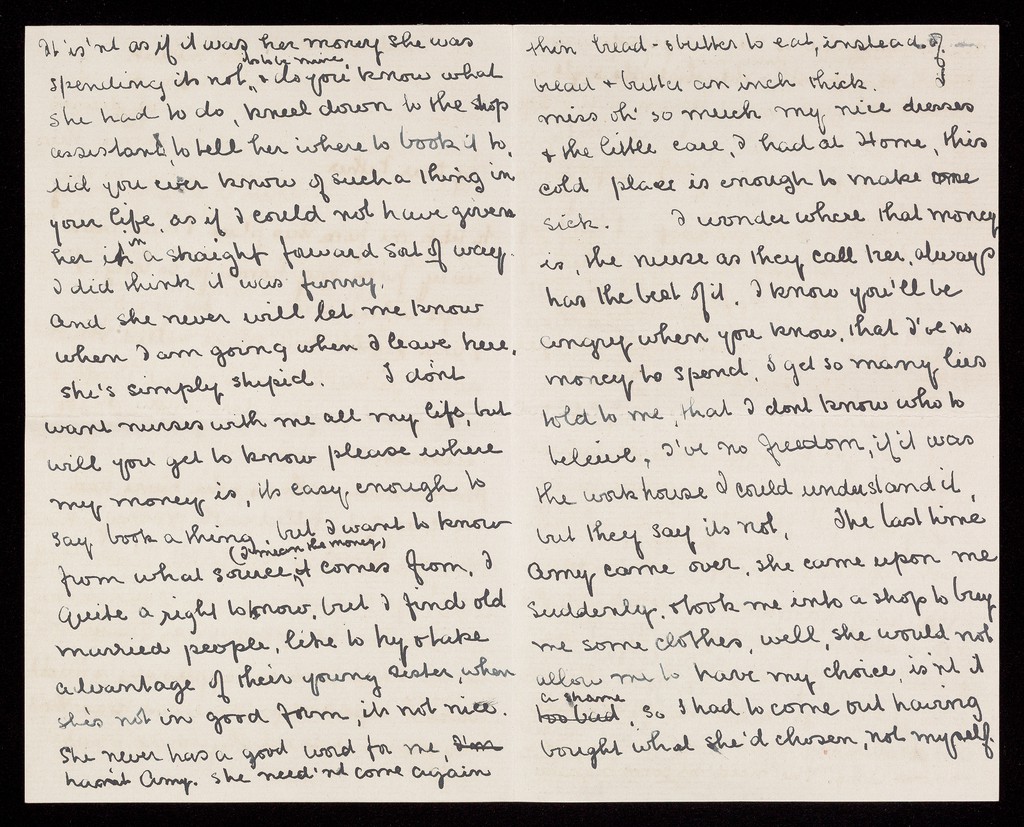 It is'nt as if it was her money she was
spending its not, its to be mine, & do you know what
she had to do, kneel down to the shop
assistant, to tell her where to book it to,
did you ever know of such a thing in
your life, as if I could not have given
her it in a straight forward sort of way.
I did think it was funny.
and she never will let me know
when I am going when I leave here,
she's simply stupid. I don't
want nurses with me all my life, but
will you get to know please where
my money is, its easy enough to
say book a thing, but I want to know
from what source it (I mean the money) comes from, I
quite a right to know, but I find old
married people, like to try & take
advantage of their young sister, when
she's not in good form, its not nice.
She never has a good word for me, I'm
hasn't Amy. She need'nt come again
thin bread - & butter to eat, instead of
bread & butter an inch thick.
miss oh' so much my nice dresses
& the little care, I had at Home, this
cold place is enough to make one
sick. I wonder where that money
is, the nurse as they call her, always
has the best of it. I know you'll be
angry when you know, that I've no
money to spend, I get so many lies
told to me, that I dont know who to
beleive, I've no freedom, if it was
the workhouse I could understand it,
but they say its not, The last time
Amy came over, she came upon me
suddenly, & took me into a shop to buy
me some clothes, well, she would not
allow me to have my choice, is'nt it
a shame too bad, so I had to come out having
bought what she'd chosen, not myself.